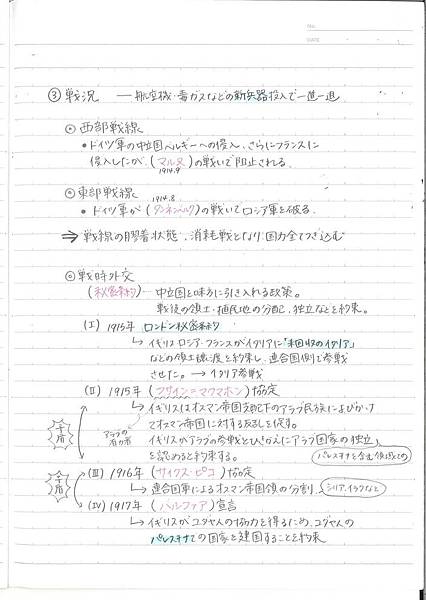 NO.
DATE
③ 戦況 ― 航空機・毒ガスなどの新兵器投入で一進一退
◎ 西部戦線
• ドイツ軍の中立国ベルギーへの侵入、さらにフランスに
侵入したが、(マルヌ)の戦いで阻止される。
1914.9
◎ 東部戦線
1914.8
• ドイツ軍が(タンネンベルク)の戦いでロシア軍を破る。
⇒ 戦線の膠着状態、消耗戦となり、国力全てつぎ込む
◎ 戦時外交
(秘密条約)― 中立国を味方に引き入れる政策。
戦後の領土・植民地の分配、独立などを約束。
(I) 1915年 ロンドン秘密条約
↳ イギリス・ロシア・フランスがイタリアに「未回収のイタリア」
などの領土譲渡を約束し、連合国側で参戦
させた。→ イタリア参戦
(II) 1915年 (フサイン=マクマホン)協定
↳ イギリスはオスマン帝国支配下のアラブ民族によびかけ
てオスマン帝国に対する反乱を促す。
アラブの
有力者
イギリスがアラブの参戦とひきかえにアラブ国家の独立
を認めると約束する。
パレスチナを含む領域での
矛盾
(III) 1916年 (サイクス・ピコ)協定
↳ 連合国軍によるオスマン帝国領の分割。
シリア、イラクなど
矛盾
(IV) 1917年 (バルフォア)宣言
↳ イギリスがユダヤ人の協力を得るため、ユダヤ人の
パレスチナでの国家を建国することを約束